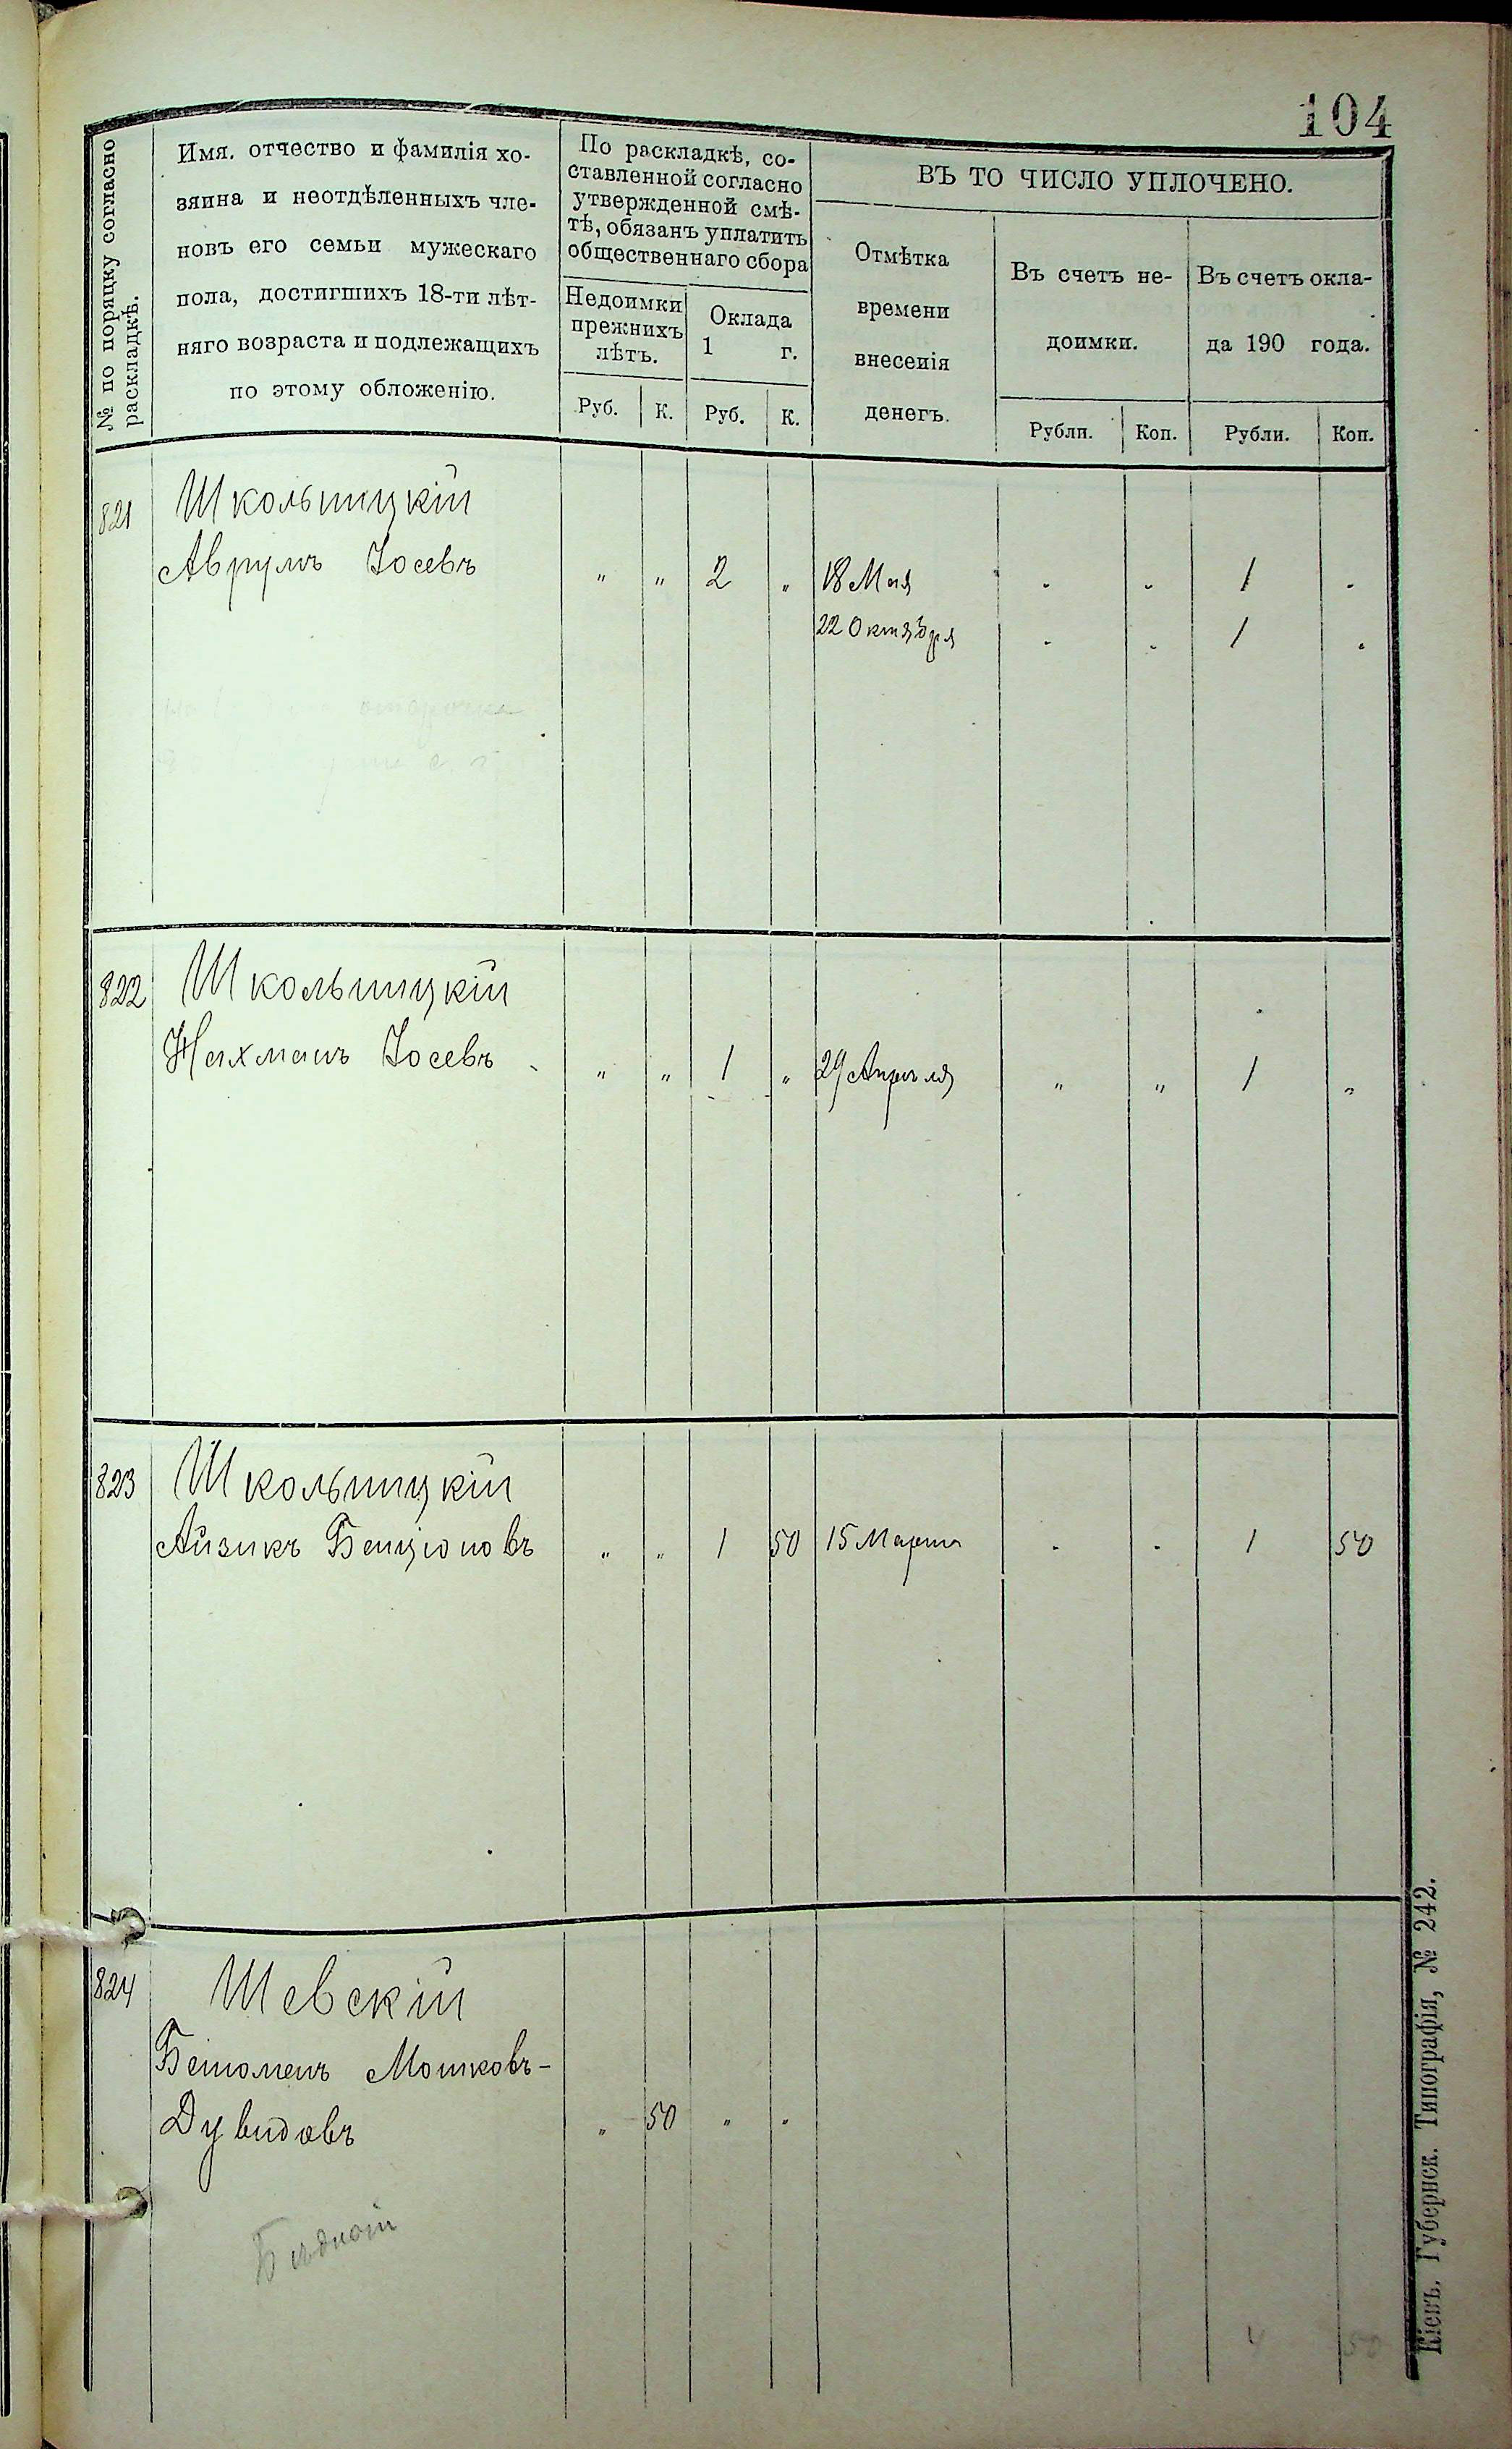 104
№ по порядку согласно
раскладкѣ.
Имя. отчество и фамилія хо-
зяина и неотдѣленныхъ чле-
новъ его семьи мужескаго
пола, достигшихъ 18-ти лѣт-
няго возраста и подлежащихъ
по этому обложенію.
По раскладкѣ, со-
ставленной согласно
утвержденной смѣ-
тѣ, обязанъ уплатить
общественнаго сбора
Недоимки
прежнихъ
лѣтъ.
Оклада
1 г.
Руб. К. Руб. К.
ВЪ ТО ЧИСЛО УПЛОЧЕНО.
Отмѣтка
времени
внесенія
денегъ.
Въ счетъ не-
доимки.
Въ счетъ окла-
да 190 года.
Рубли. Коп. Рубли. Коп.
821 Школьницкій
Аврумъ Іосевъ " " 2 " 18 Мая " " 1 "
22 Октября " " 1 "
822 Школьницкій
Нахманъ Іосевъ " " 1 " 29 Апрѣля " " 1 "
823 Школьницкій
Айзикъ Бенціоновъ " " 1 50 15 Марта " " 1 50
824 Шевскій
Мошковъ-
Дувидовъ " 50 " "
Бѣдной
4 50
Кіевъ. Губернск. Типографія, № 242.